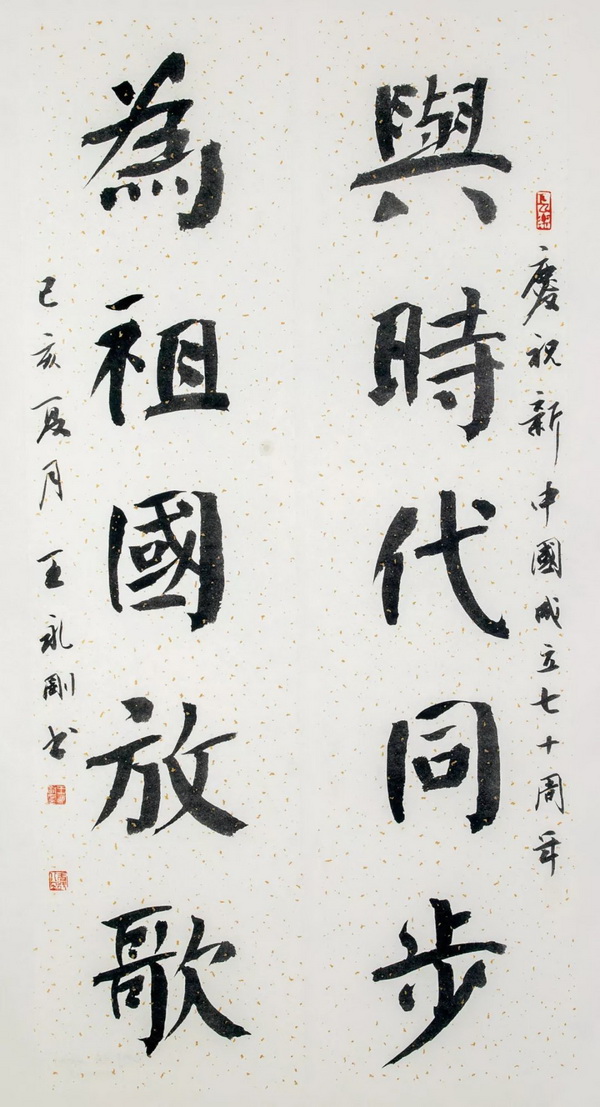 慶祝新中國成立七十周年
與時代同步
為祖國放歌
己亥夏月王永剛書